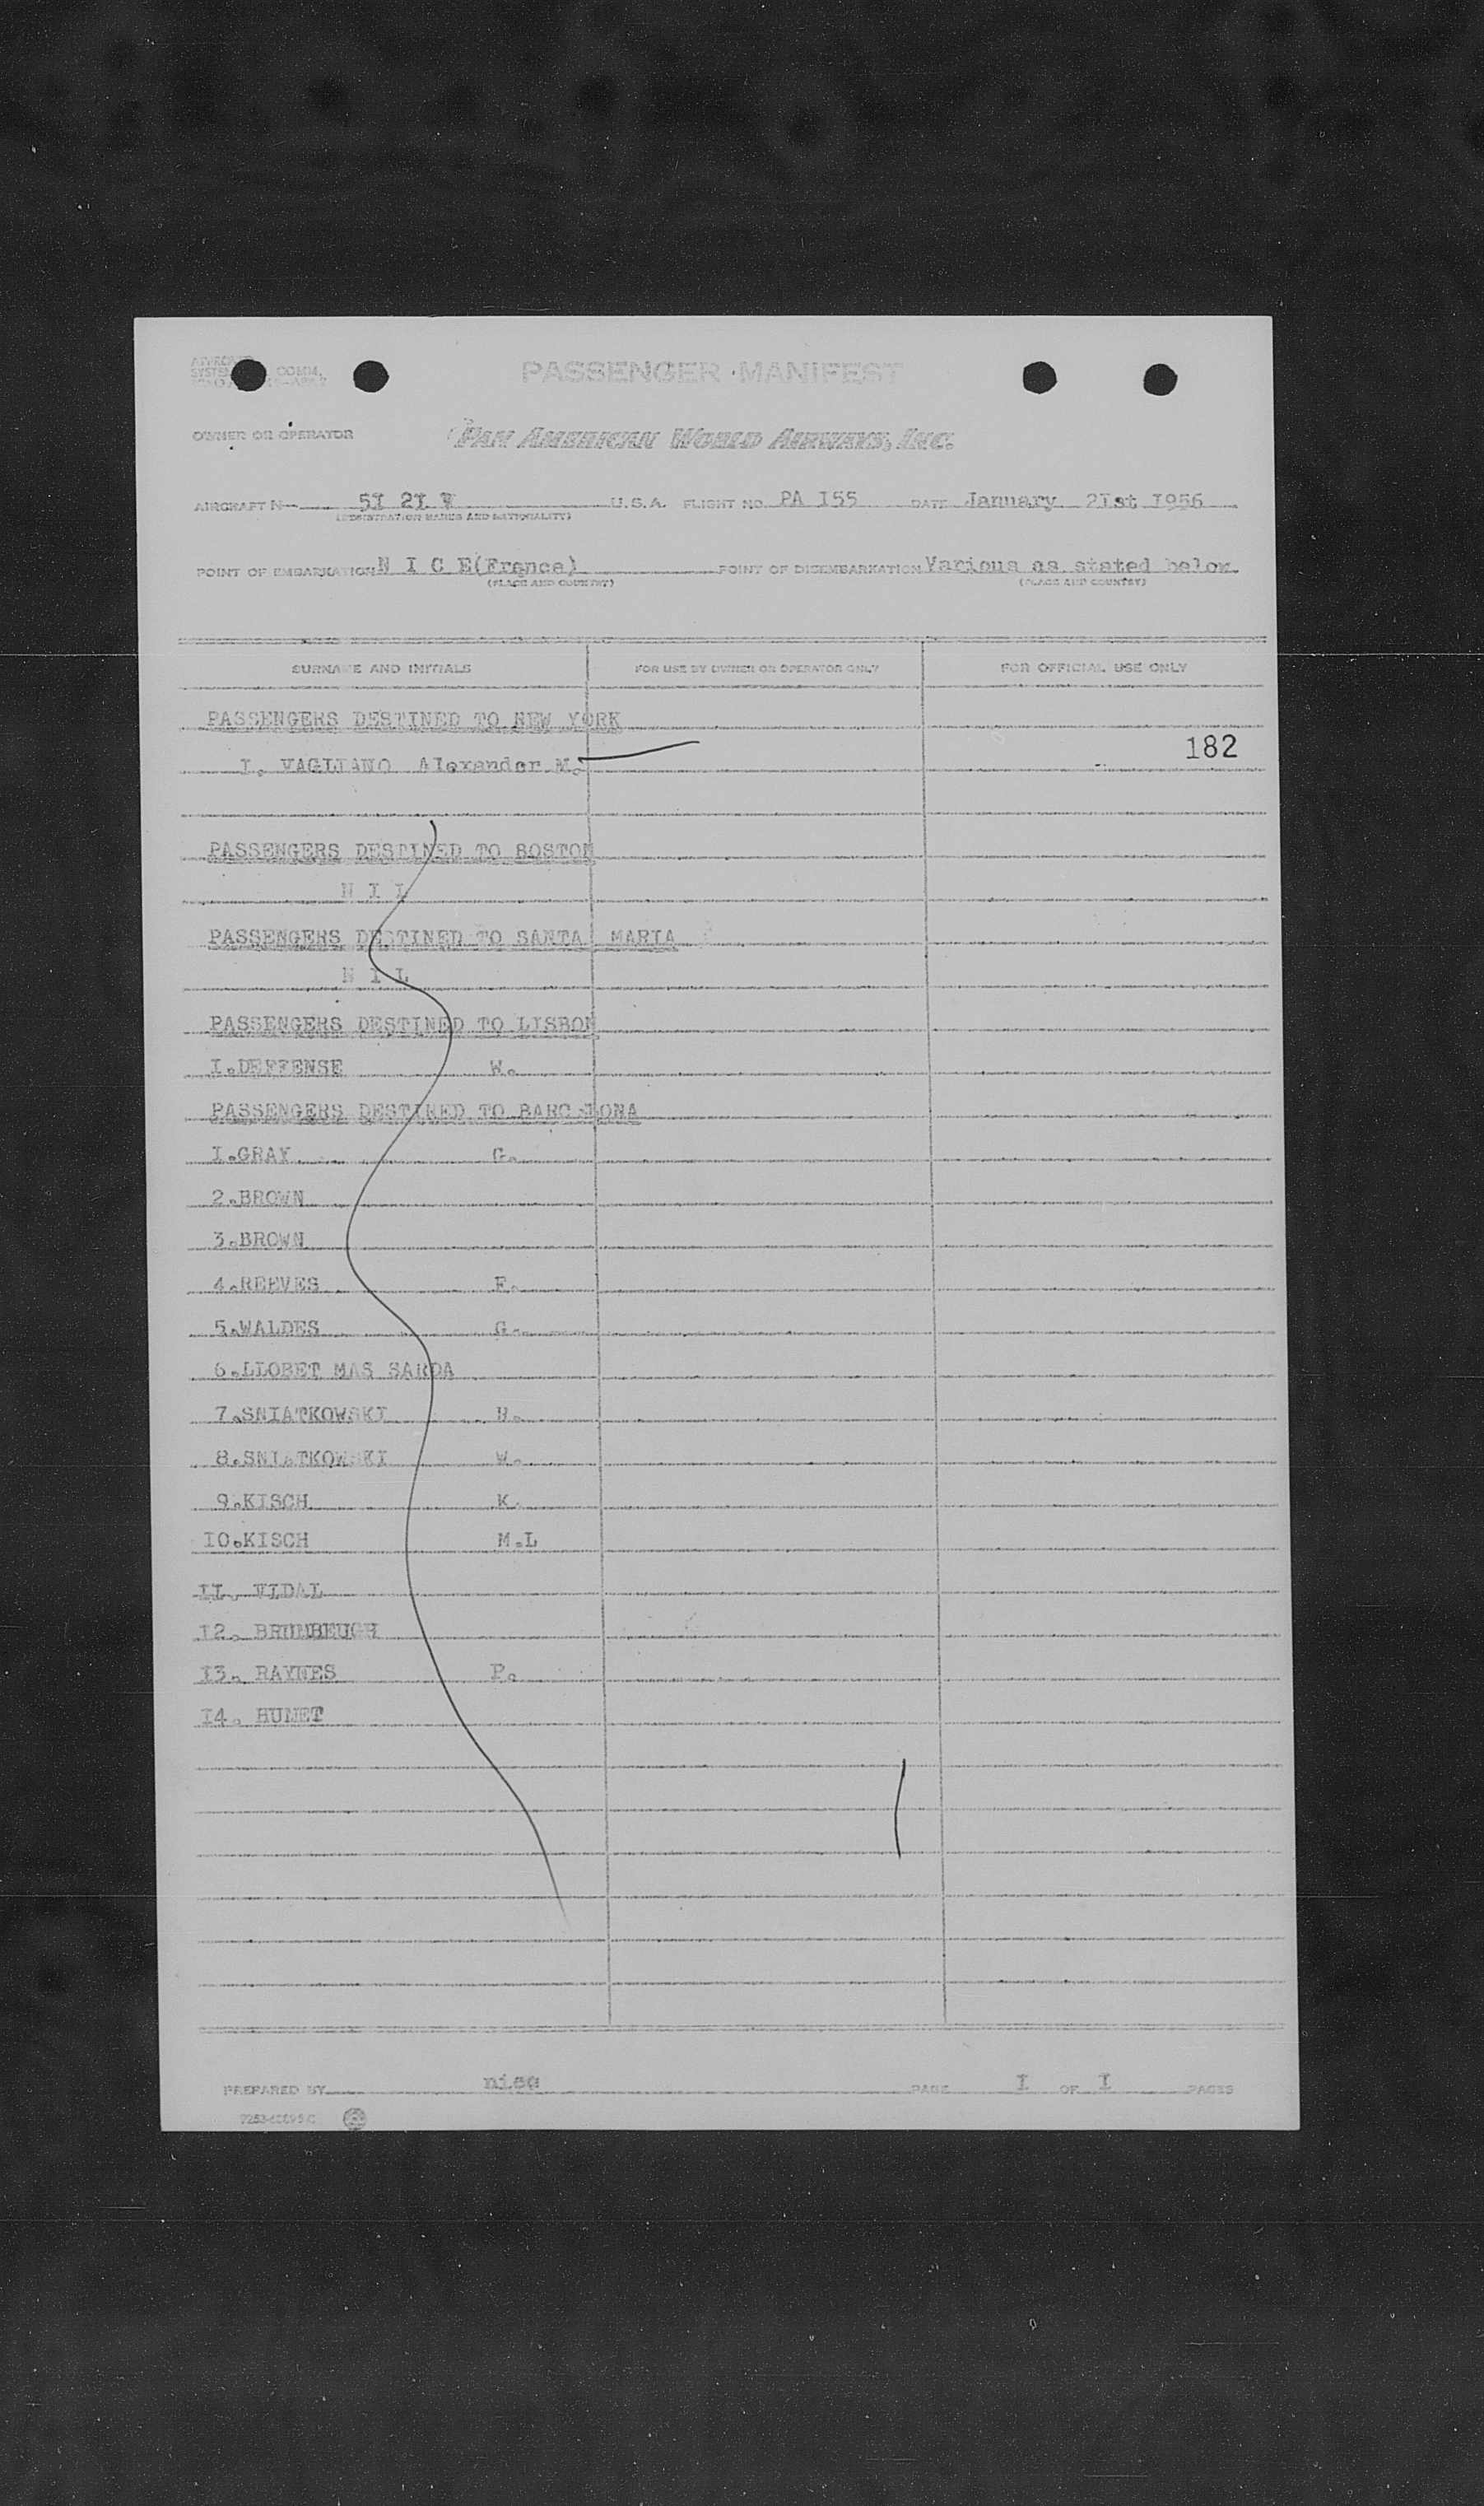 PASSENGER MANIFEST
OWNER OR OPERATOR PAN AMERICAN WORLD AIRWAYS, INC.
AIRCRAFT N- 5I 2I V U.S.A. FLIGHT NO. PA I55 DATE January 2Ist I956
(REGISTRATION MARKS AND NATIONALITY)
POINT OF EMBARKATION N I C E(France) POINT OF DISEMBARKATION Various as stated below
(PLACE AND COUNTRY) (PLACE AND COUNTRY)
SURNAME AND INITIALS FOR USE BY OWNER OR OPERATOR ONLY FOR OFFICIAL USE ONLY
PASSENGERS DESTINED TO NEW YORK
182
I. VAGLIANO Alexander M.
PASSENGERS DESTINED TO BOSTON
N I L
PASSENGERS DESTINED TO SANTA MARIA
N I L
PASSENGERS DESTINED TO LISBON
I.DEFFENSE W.
PASSENGERS DESTINED TO BARCELONA
I.GRAY G.
2.BROWN
3.BROWN
4.REEVES F.
5.WALDES G.
6.LLOBET MAS SARDA
7.SNIATKOWSKI H.
8.SNIATKOWSKI W.
9.KISCH K.
IO.KISCH M.L
II. VIDAL
I2. BRUMBEUGH
I3. RAYNES P.
I4. HUNET
PREPARED BY nice PAGE I OF I PAGES